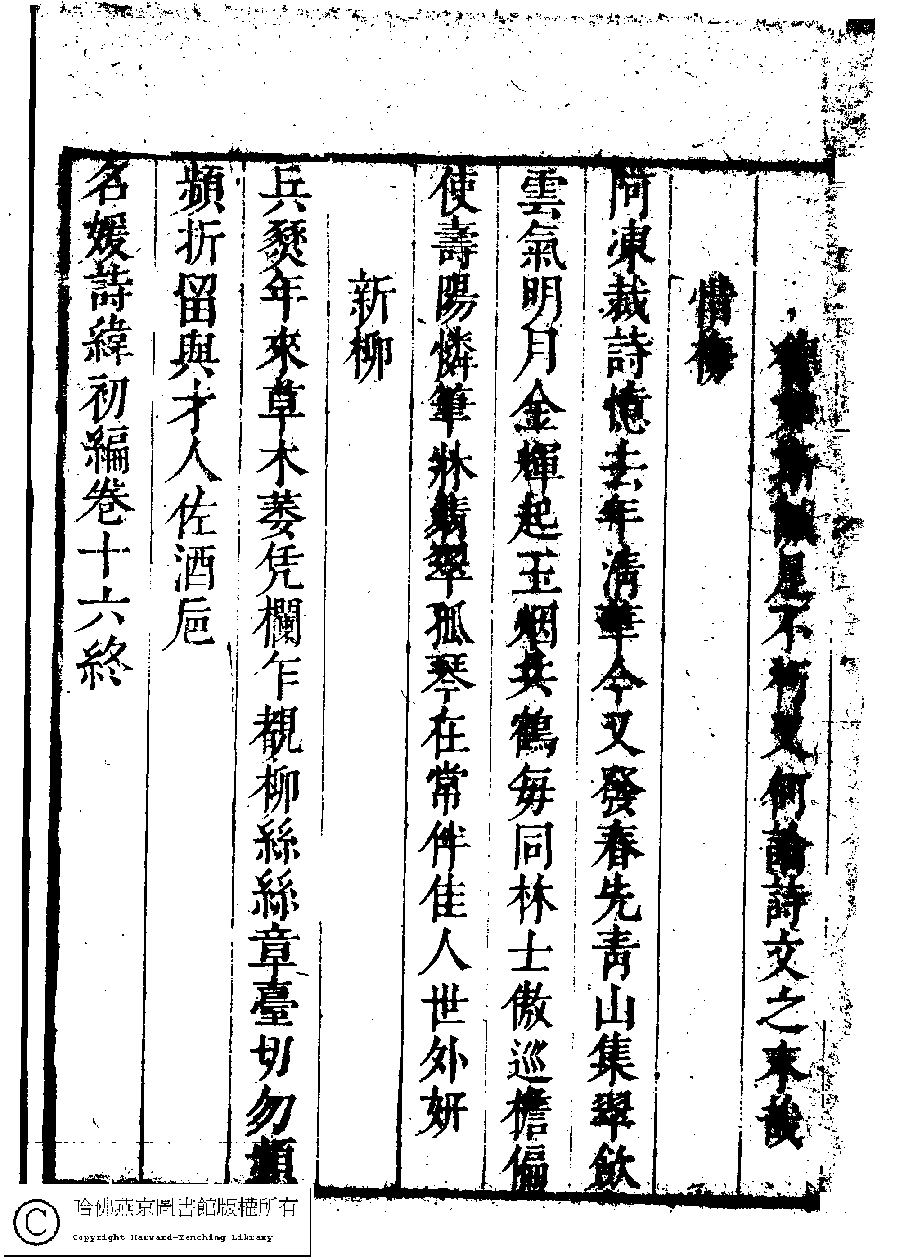 斯願是不朽又何論詩文之末哉
惜梅
呵凍裁詩憶去年清華今又發春先青山集翠飲
雲氣明月金輝起玉烟共鶴每同林士傲巡檐偏
使壽陽憐筆牀翡翠孤琴在常伴佳人世外妍
新柳
兵燹年來草木萎凭欄乍覩柳絲絲章臺切勿頻
頻折留與才人佐酒巵
名媛詩緯初編卷十六終
哈佛燕京圖書館版權所有
Copyright Harvard-Yenching Library